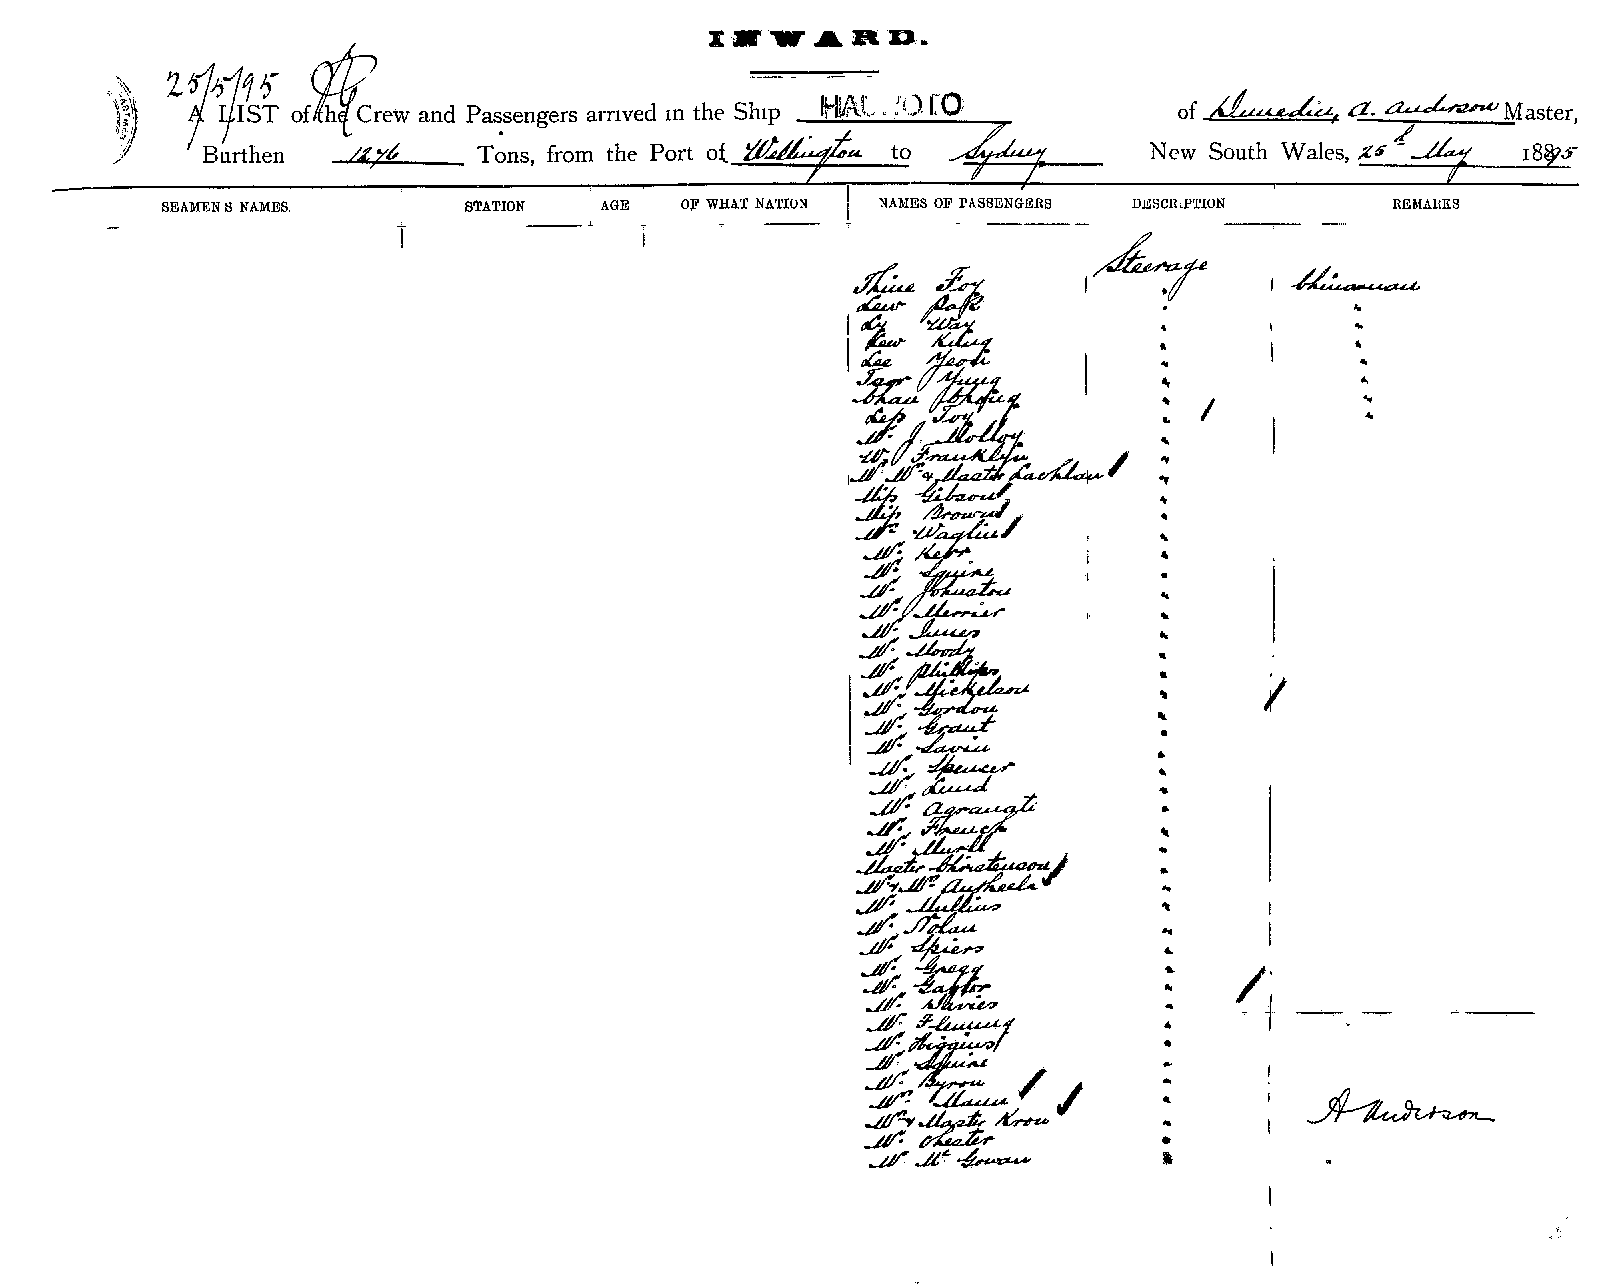 INWARD.
25/5/95
A LIST of the Crew and Passengers arrived in the Ship HAUROTO of Dunedin, A. Anderson Master,
Burthen 1276 Tons, from the Port of Wellington to Sydney New South Wales, 25th May 1895
SEAMENS NAMES. STATION AGE OF WHAT NATION NAMES OF PASSENGERS DESCRIPTION REMARKS
Steerage
Foy Chinaman
Lew " "
Ly Way " "
Kew King " "
Lee " "
Yung " "
Chan " "
Toy " "
Mr. J. Molloy "
W. Franklyn "
Mr Mrs & Master Lachlan "
Miss Gibson "
Miss Brown "
"
Mr. Kerr "
Mr. Squire "
Mr. Johnston "
Mr. Merrier "
Mr. Innes "
Mr. Moody "
Mr. Phillips "
Mr. Mickelson "
Mr. Gordon "
Mr. Grant "
Mr. Savin "
Mr. Spencer "
Mr. Lund "
Mr. Agranati "
Mr. French "
Mr. "
Master Christenson "
Mr & Mrs "
Mr. Mullins "
Mr. Nolan "
Mr. Spiers "
Mr. Gregg "
Mr. Gaylor "
Mr. Davies "
Mr. Fleming "
Mr. Higgins "
Mr. Squire "
Mr. Byron "
Mrs. Mann "
Mrs & Master Kron " A Anderson
Mr. Chester "
Mr. McGowan "